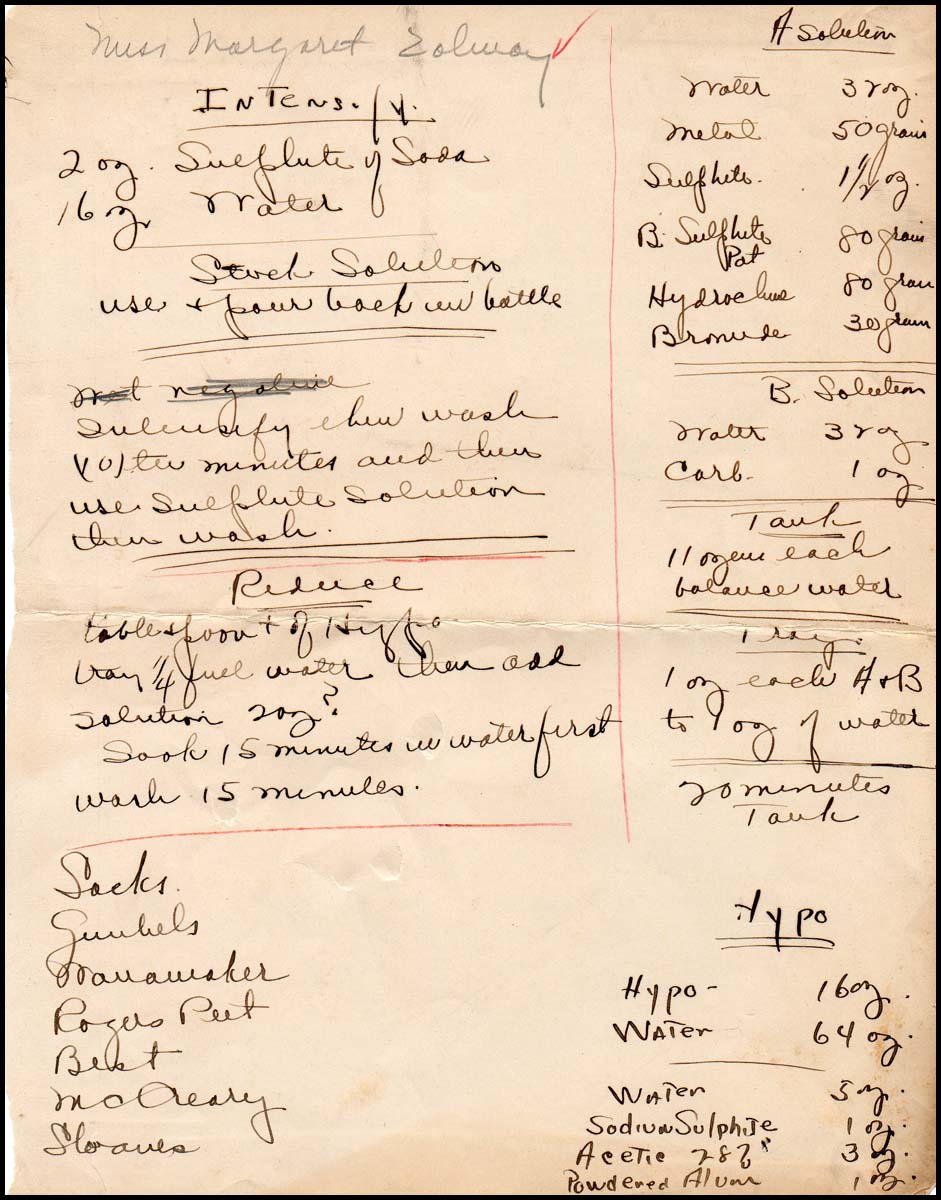 Miss Margaret
Intensify.
2 oz. Sulphite of Soda
16 oz Water
Stock Solution
use + pour back in bottle
Wet negative
Intensify then wash
(10) ten minutes and then
use Sulphite Solution
then wash.
Reduce
tablespoon + of Hypo
tray 1/4 full water then add
solution 2oz?
Soak 15 minutes in water first
wash 15 minutes.
Sacks.
Gimbels
Wanamaker
Rogers Peet
Best
McCreary
Sloanes
A Solution
Water 32oz.
Metol 50 grain
Sulphite. 1 1/2 oz.
B. Sulphite 80 grain
Pot
Hydrochin 80 grain
Bromide 30 grain
B. Solution
Water 32oz
Carb. 1 oz
Tank
11 oz each
balance water
Tray.
1 oz each A + B
to 9 oz of water
20 minutes
Tank
Hypo
Hypo - 16oz.
Water 64 oz.
Water 5 oz.
Sodium Sulphite 1 oz.
Acetic 28% 3 oz.
Powdered Alum 1 oz.